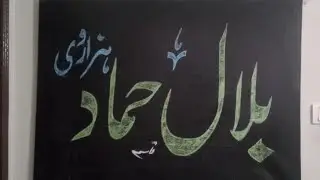 بلال حماد
ہزاروی